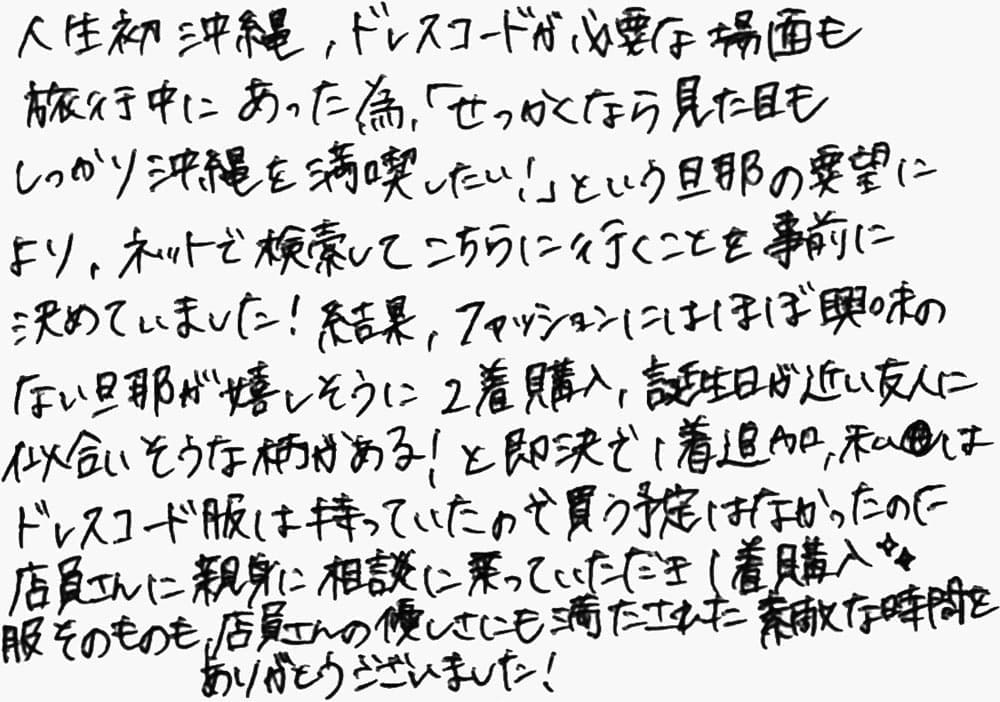 人生初沖縄，ドレスコードが必要な場面も
旅行中にあった為，「せっかくなら見た目も
しっかり沖縄を満喫したい！」という旦那の要望に
より，ネットで検索してこちらに行くことを事前に
決めていました！結果，ファッションにはほぼ興味の
ない旦那が嬉しそうに2着購入，誕生日が近い友人に
似合いそうな柄がある！と即決で1着追加，私は
ドレスコード服は持っていたので買う予定はなかったのに
店員さんに親身に相談に乗っていただき1着購入✧✧
服そのものも，店員さんの優しさにも満たされた素敵な時間を
ありがとうございました！